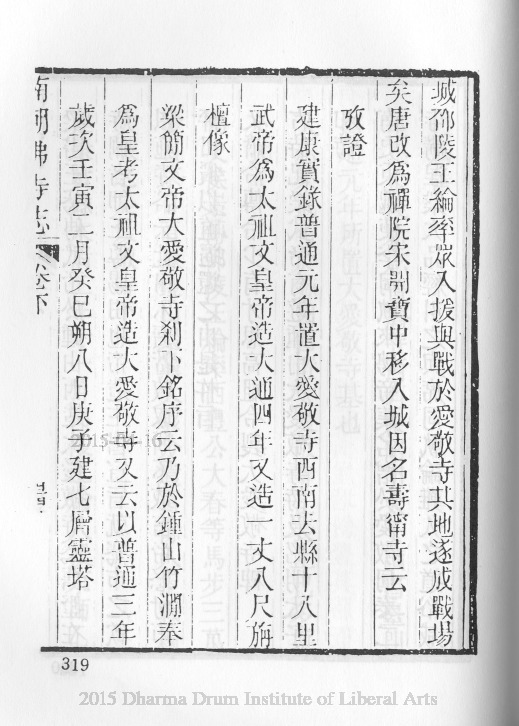 城邵陵王綸率眾入援與戰於愛敬寺其地遂成戰場
矣唐改爲禪院宋開寶中移入城因名壽甯寺云
攷證
建康實錄普通元年置大愛敬寺西南去縣十八里
武帝爲太祖文皇帝造大通四年又造一丈八尺旃
檀像
梁簡文帝大愛敬寺刹下銘序云乃於鍾山竹澗奉
爲皇考太祖文皇帝造大愛敬寺又云以普通三年
歲次壬寅二月癸巳朔八日庚子建七層靈塔
南朝佛寺志 卷下
319
2015 Dharma Drum Institute of Liberal Arts